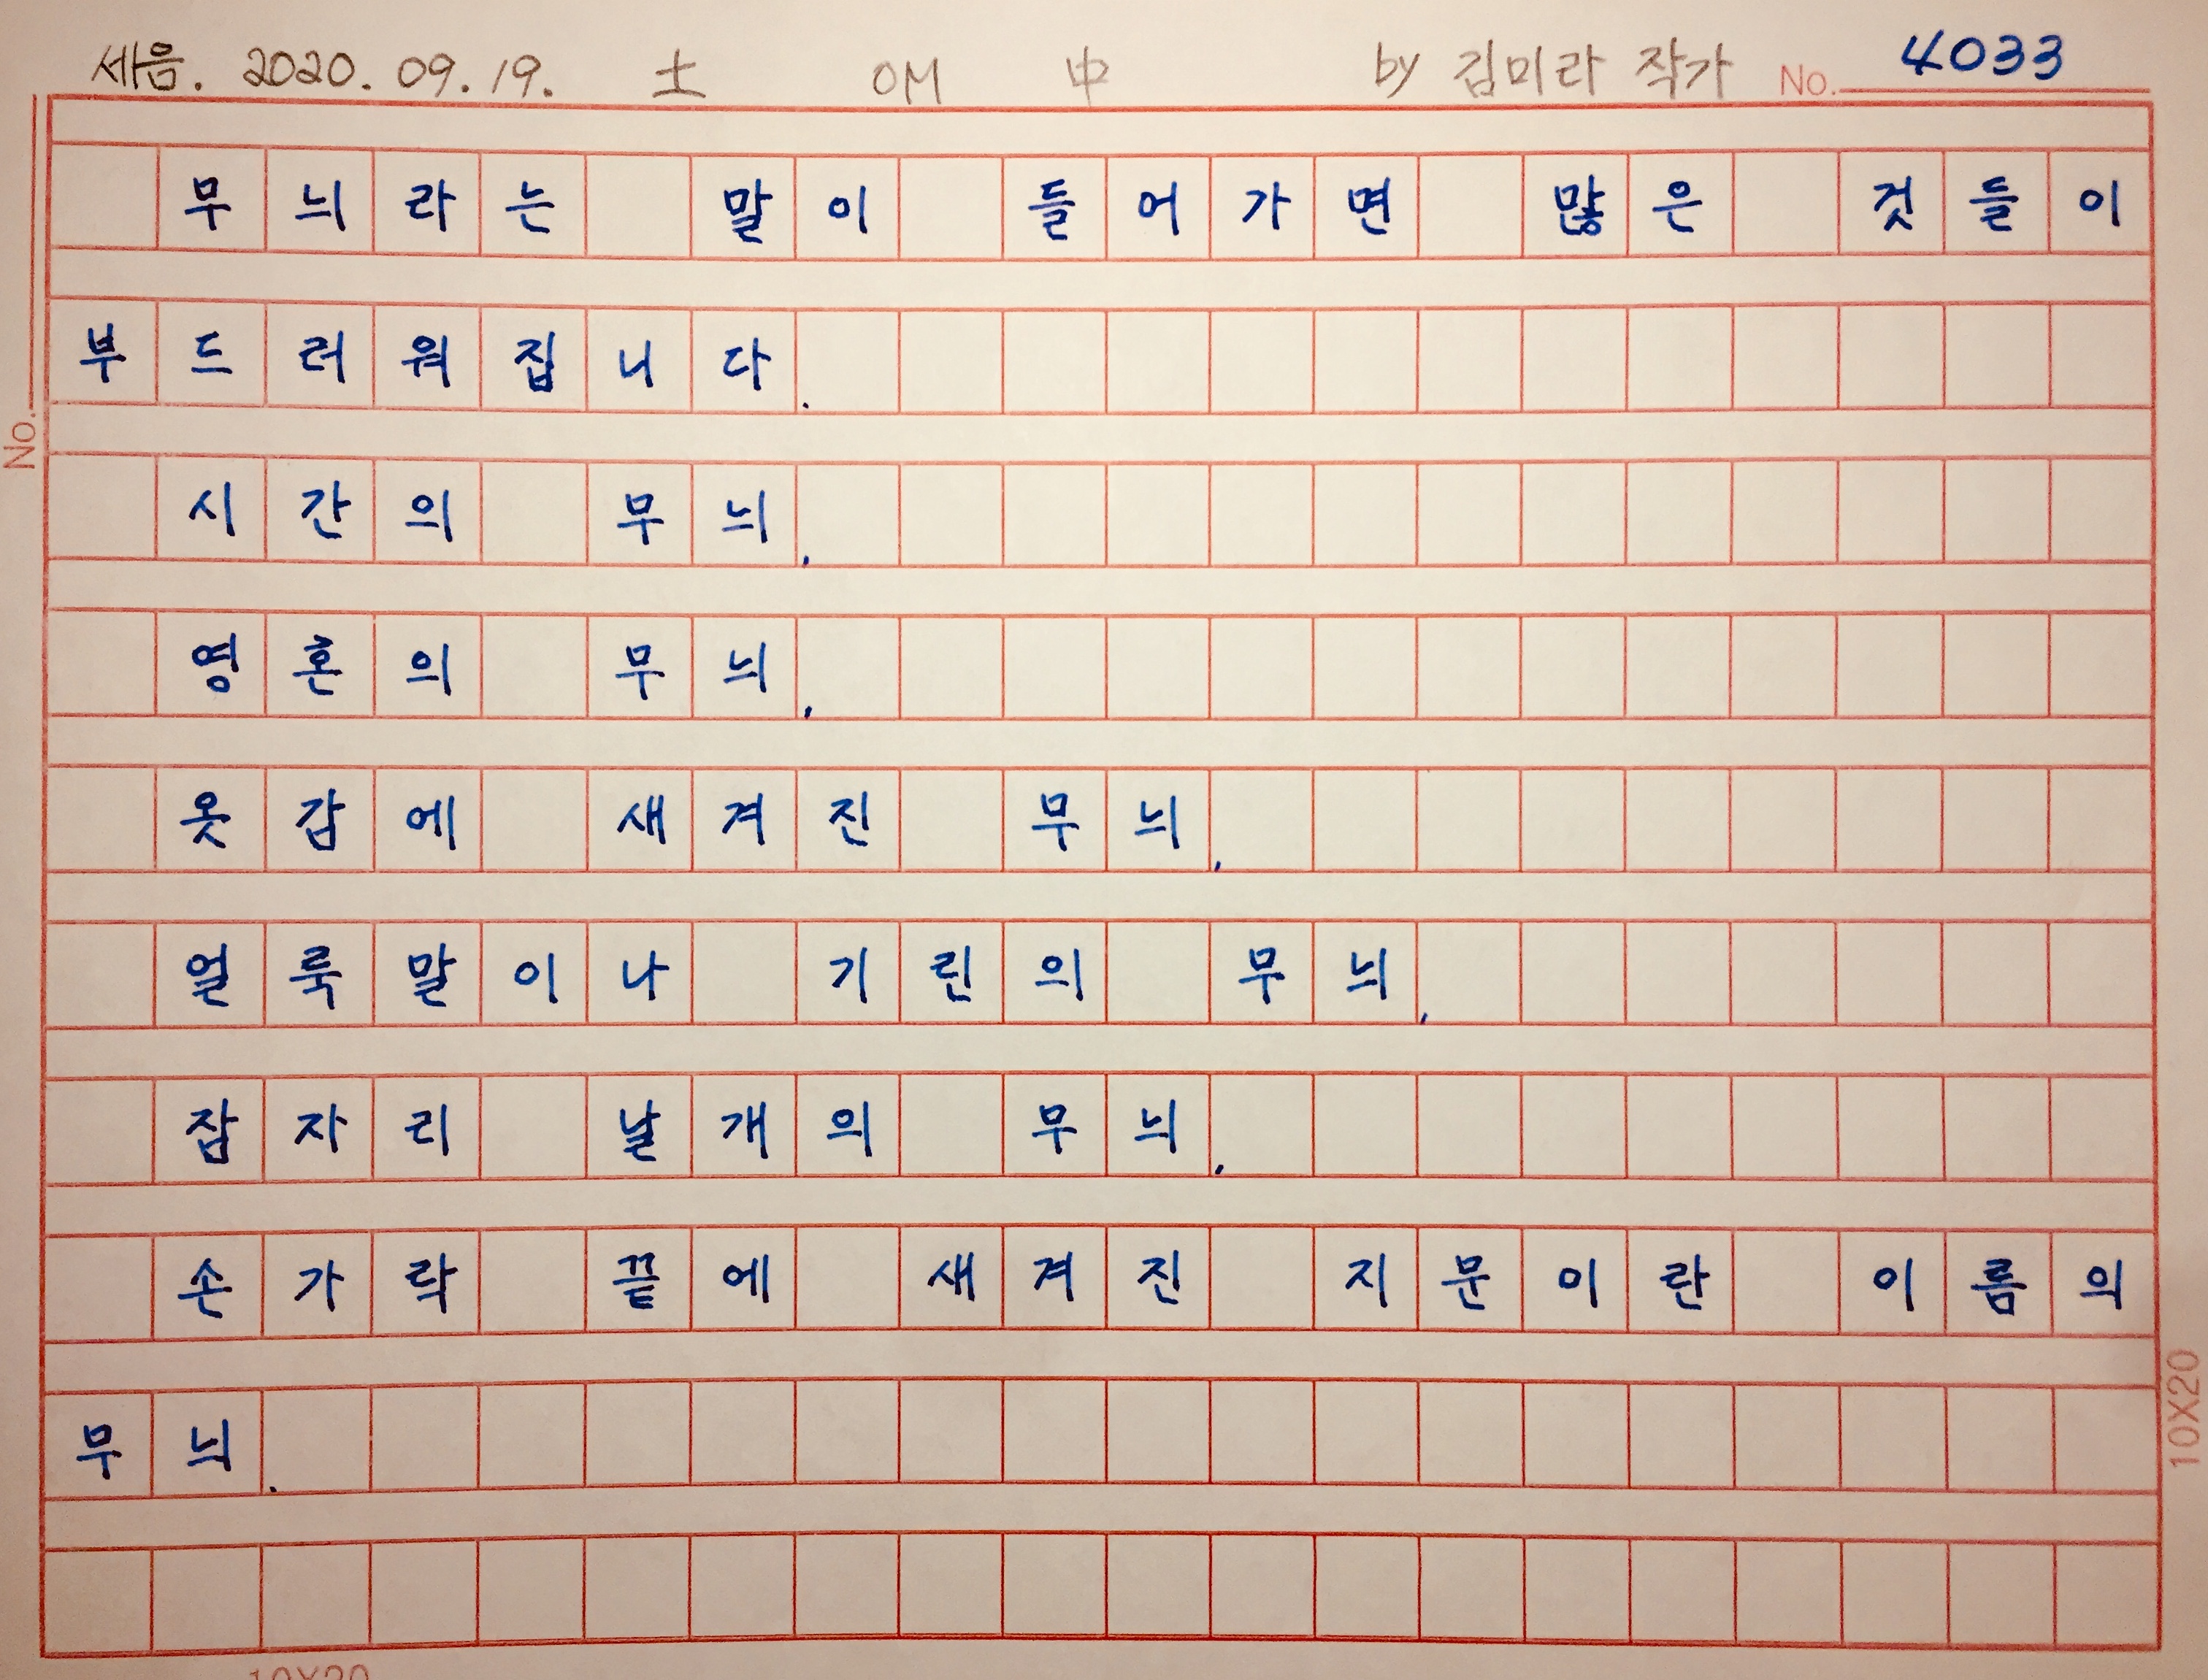 세음. 2020. 09. 19. 土 OM 中 by 김미라 작가 No. 4033
무늬라는 말이 들어가면 많은 것들이
부드러워집니다.
시간의 무늬,
영혼의 무늬,
옷감에 새겨진 무늬,
얼룩말이나 기린의 무늬,
잠자리 날개의 무늬,
손가락 끝에 새겨진 지문이란 이름의
무늬.
No.
10X20
10X20